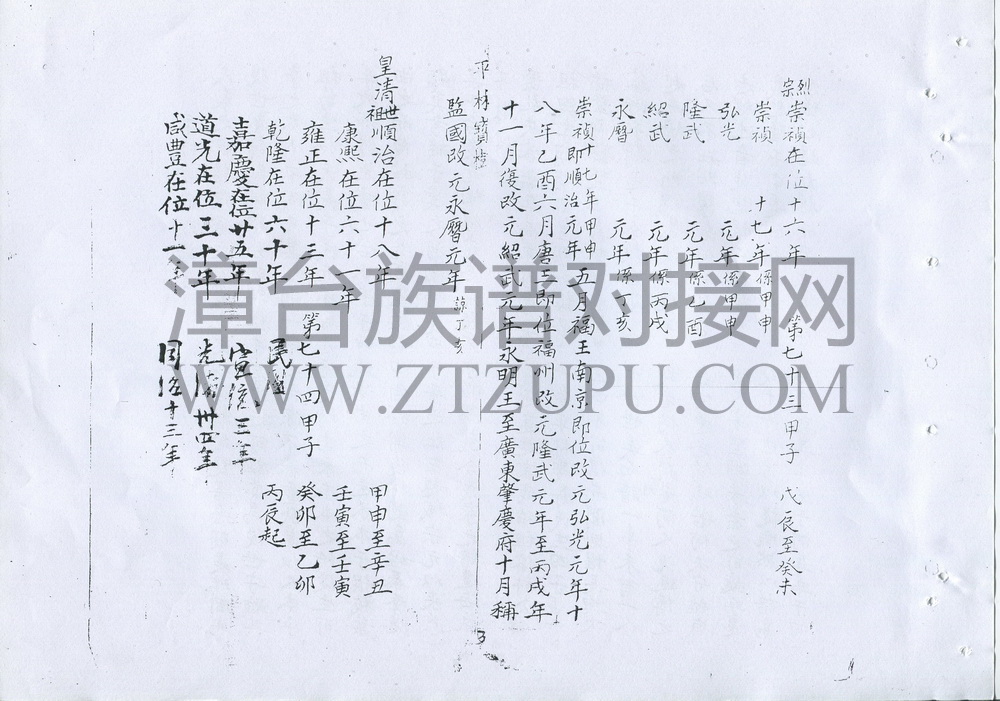 烈宗崇禎在位十六年 第七十三甲子 戊辰至癸未
崇禎 十七年係甲申
弘光 元年係甲申
隆武 元年係乙酉
紹武 元年係丙戌
永曆 元年係丁亥
崇禎十七年甲申即順治元年五月福王南京即位改元弘光元年十
八年乙酉六月唐王即位福州改元隆武元年至丙戌年
十一月復改元紹武元年永明王至廣東肇慶府十月稱
監國改元永曆元年 丁亥
皇清世祖順治在位十八年 甲申至辛丑
康熙在位六十一年 壬寅至壬寅
雍正在位十三年 第七十四甲子 癸卯至乙卯
乾隆在位六十年 民國 丙辰起
嘉慶在位廿五年 宣統三年
道光在位三十年 光緒卅四年
咸豐在位十一年 同治十三年
3
漳台族谱对接网
WWW.ZTZUPU.COM